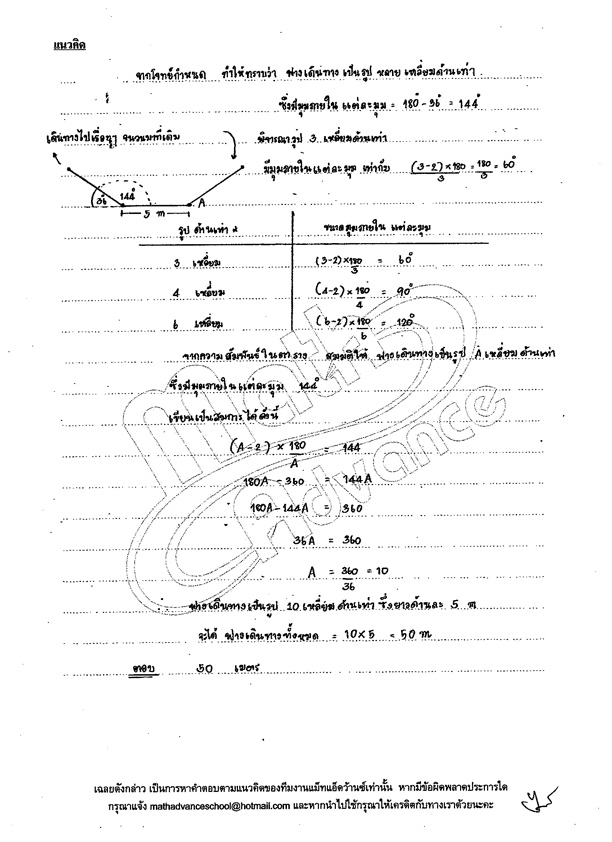 แนวคิด
จากโจทย์กำหนด ทำให้ทราบว่า ฟางเดินทาง เป็นรูป หลาย เหลี่ยมด้านเท่า
ซึ่งมีมุมภายใน แต่ละมุม = 180° - 36° = 144°
เดินทางไปเรื่อยๆ จนวนมาที่เดิม
พิจารณารูป 3 เหลี่ยมด้านเท่า
มีมุมภายในแต่ละมุม เท่ากับ (3-2)×180/3 = 180/3 = 60°
36° 144° A
5 m
รูป ด้านเท่า ขนาดมุมภายใน แต่ละมุม
3 เหลี่ยม (3-2)×180/3 = 60°
4 เหลี่ยม (4-2)×180/4 = 90°
6 เหลี่ยม (6-2)×180/6 = 120°
จากความสัมพันธ์ในตาราง สมมติให้ ฟางเดินทางเป็นรูป A เหลี่ยมด้านเท่า
ซึ่งมีมุมภายในแต่ละมุม 144°
เขียนเป็นสมการได้ดังนี้
(A-2) × 180/A = 144
180A - 360 = 144A
180A - 144A = 360
36A = 360
A = 360/36 = 10
ฟางเดินทางเป็นรูป 10 เหลี่ยมด้านเท่า ซึ่งยาวด้านละ 5 m
จะได้ ฟางเดินทางทั้งหมด = 10×5 = 50 m
ตอบ 50 เมตร
Math Advance
เฉลยดังกล่าว เป็นการหาคำตอบตามแนวคิดของทีมงานแม็ทแอ็ดว้านซ์เท่านั้น หากมีข้อผิดพลาดประการใด
กรุณาแจ้ง mathadvanceschool@hotmail.com และหากนำไปใช้กรุณาให้เครดิตกับทางเราด้วยนะคะ